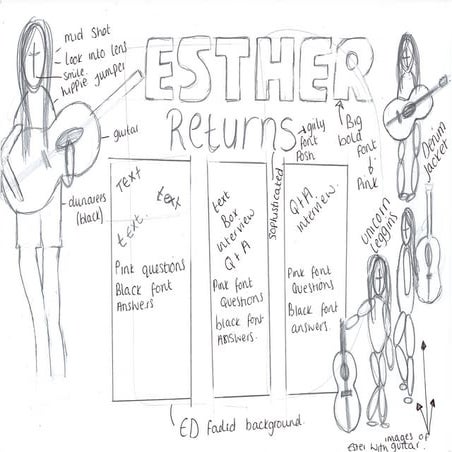 mid shot
Look into lens
smile
hippie jumper
guitar
dunarees
(black)
ESTHER
Returns
girly
font
Posh
Big
bold
font
&
Pink
Denim
Jacket
unicorn
leggins
sophisticated
TEXT
text
text.
Pink questions
Black font
Answers
text
Box
interview
Q+A
Pink font
Questions
black font
Answers.
Q+A
interview.
Pink font
Questions
Black font
answers.
ED faded background.
images of
Ester with guitar.